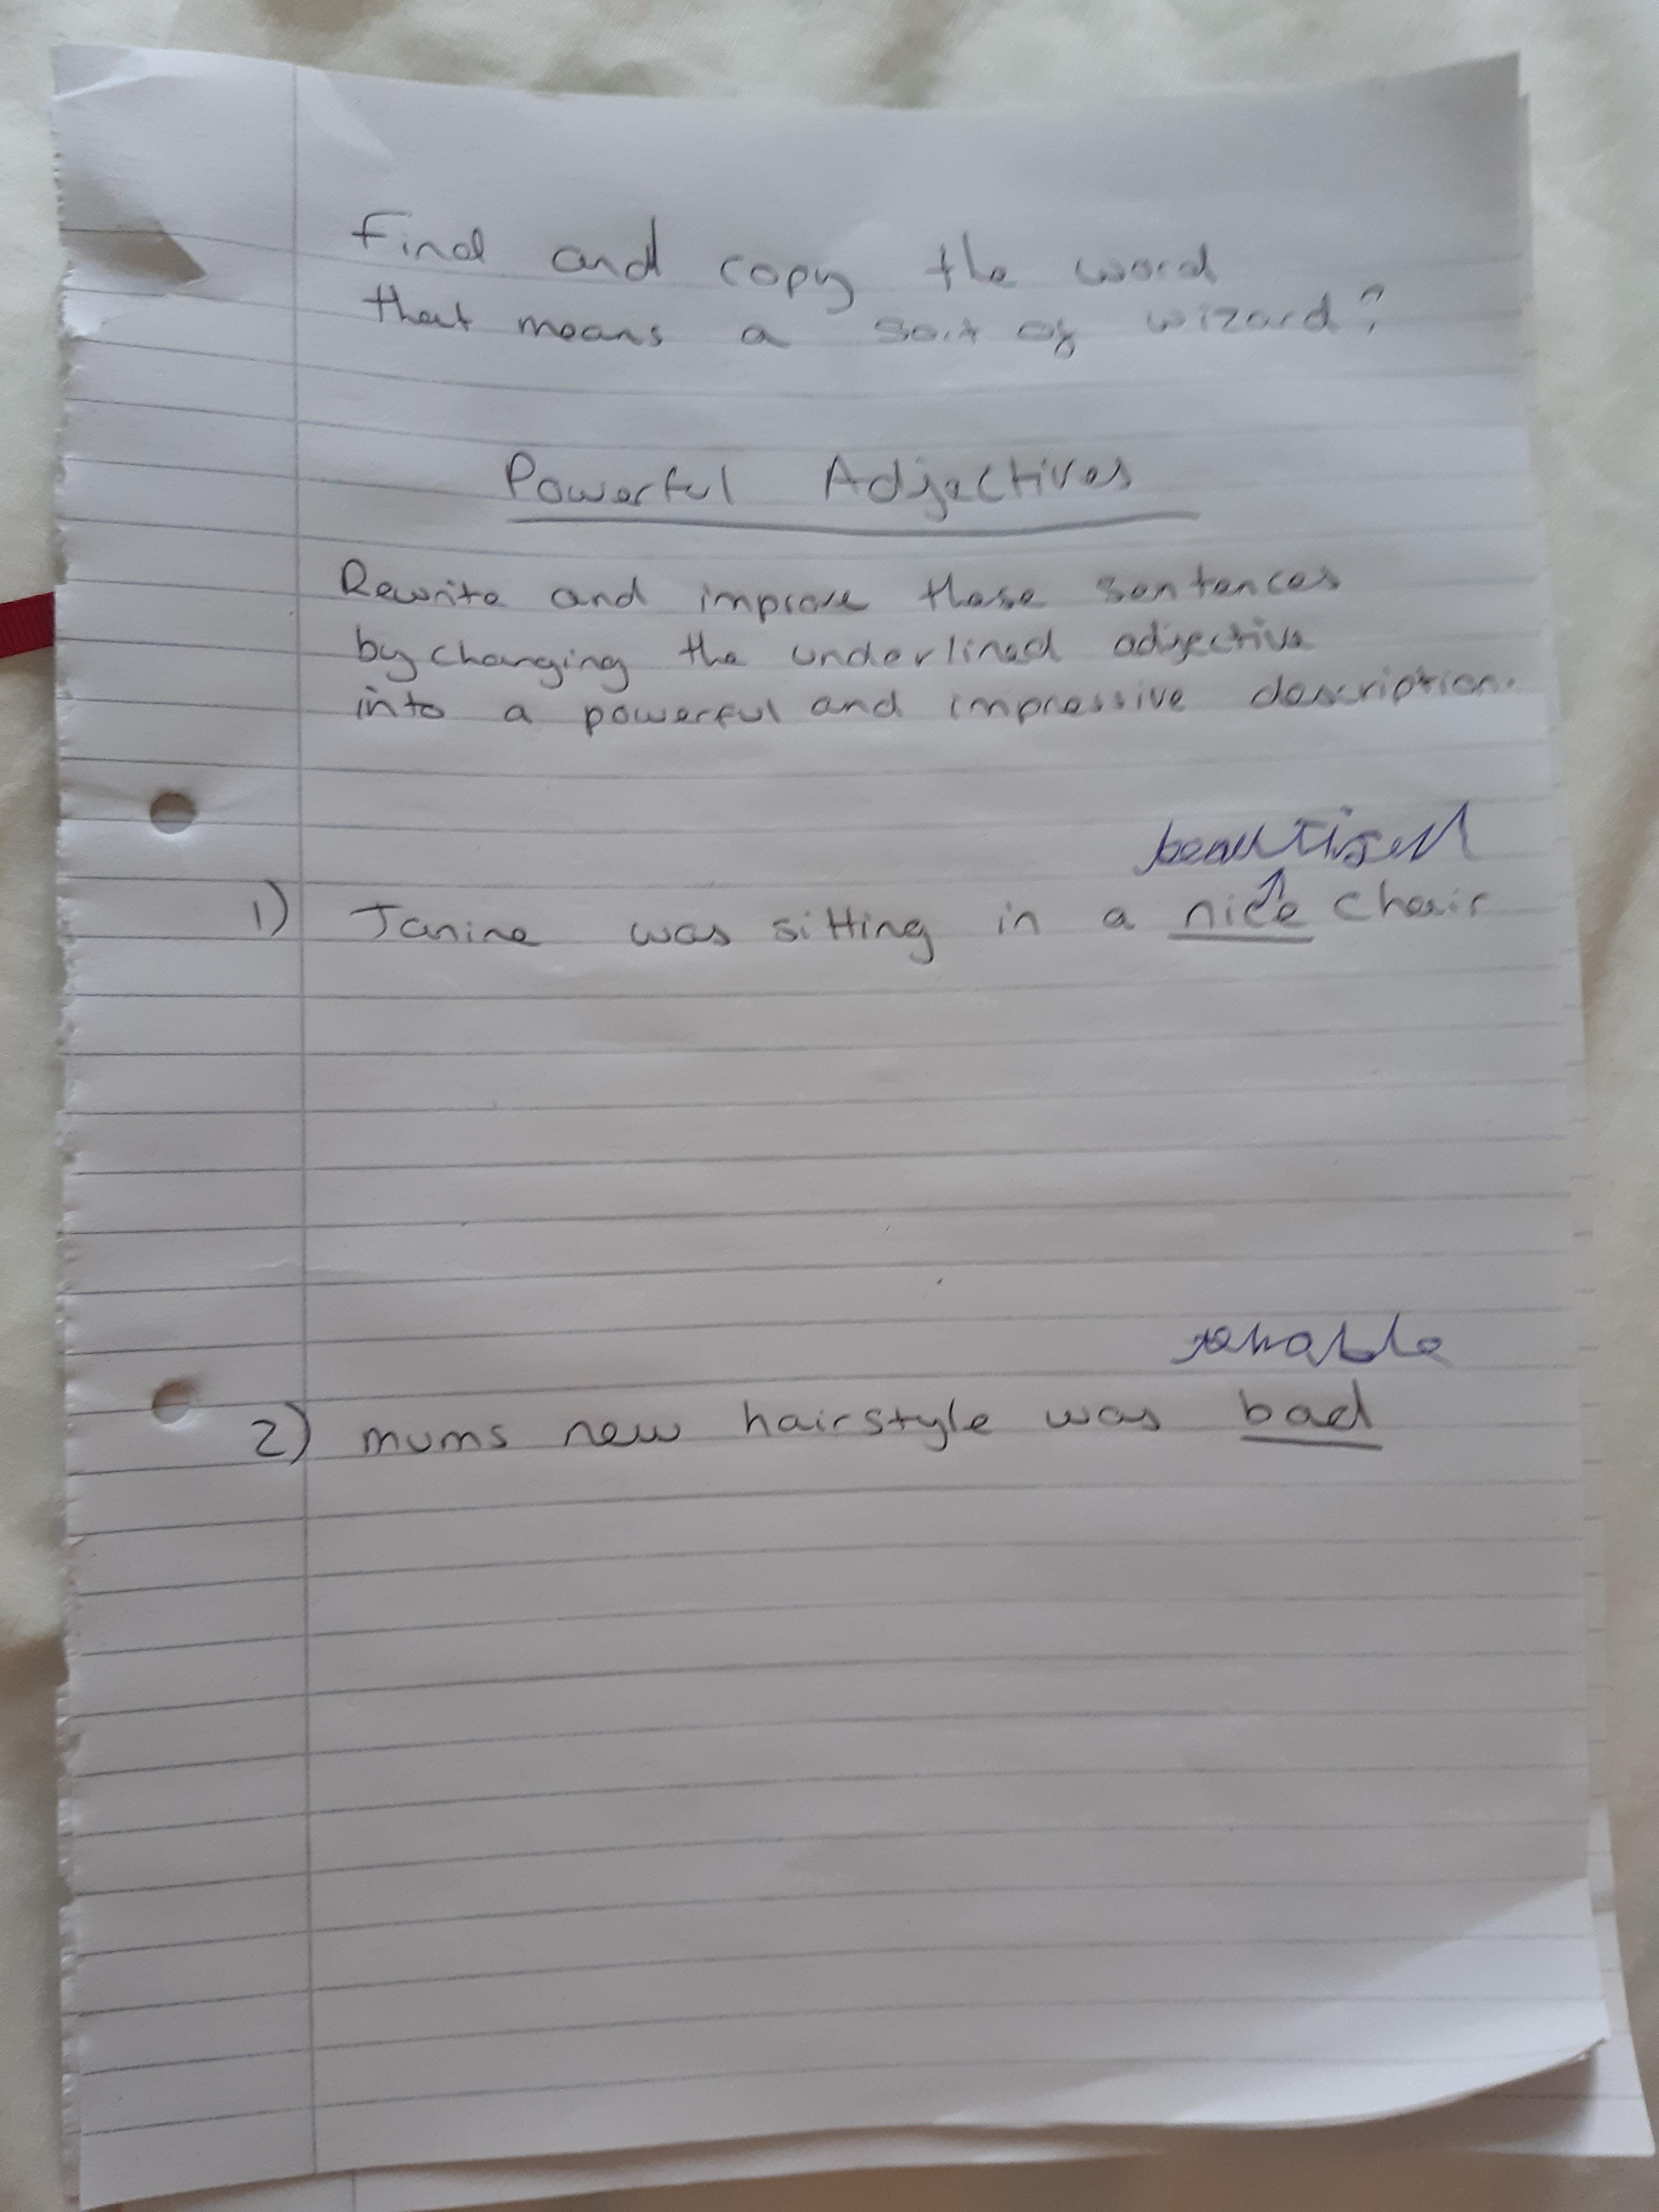 Find and copy the word
that means a sort of wizard?
Powerful Adjectives
Rewrite and improve these sentences
by changing the underlined adjective
into a powerful and impressive description.
beautifull
1) Janine was sitting in a nice chair
2) mums new hairstyle was bad